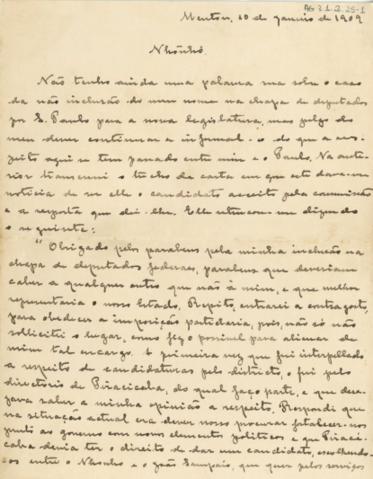 AG 21.2.25-1
Menton, 10 de janeiro de 1909
Nhônhô.
Não tenho ainda uma palavra sua sobre o caso
da não inclusão do meu nome na chapa de deputados
por S. Paulo para a nova legislatura, mas julgo do
meu dever continuar a informal-o do que a res-
peito aqui se tem passado entre mim e o Paulo. Na ante-
rior transcrevi o trecho de carta em que este dava-me
noticia de ser elle o candidato acceito pela commissão
e a resposta que dei-lhe. Elle retrucou-me dizendo
o seguinte:
"Obrigado pelos parabens pela minha inclusão na
chapa de deputados federaes, parabens que deveriam
caber a qualquer outro que não à mim, e que melhor
representaria o nosso Estado. Repito, entrarei a contragosto,
para obedecer a imposição partidaria, pois, não só não
sollicitei o lugar, como fiz o possivel para alienar de
mim tal encargo. A primeira vez que fui interpellado
a respeito de candidaturas pelo districto, o fui pelo
directorio de Piracicaba, do qual faço parte, e que dese-
java saber a minha opinião a respeito. Respondi que
na situação actual era dever nosso procurar fortalecer-nos
junto ao governo com novos elementos politicos e que Piraci-
caba devia ter o direito de dar um candidato, escolhendo-
os entre o Nhonho e o João Sampaio, que quer pelos serviços